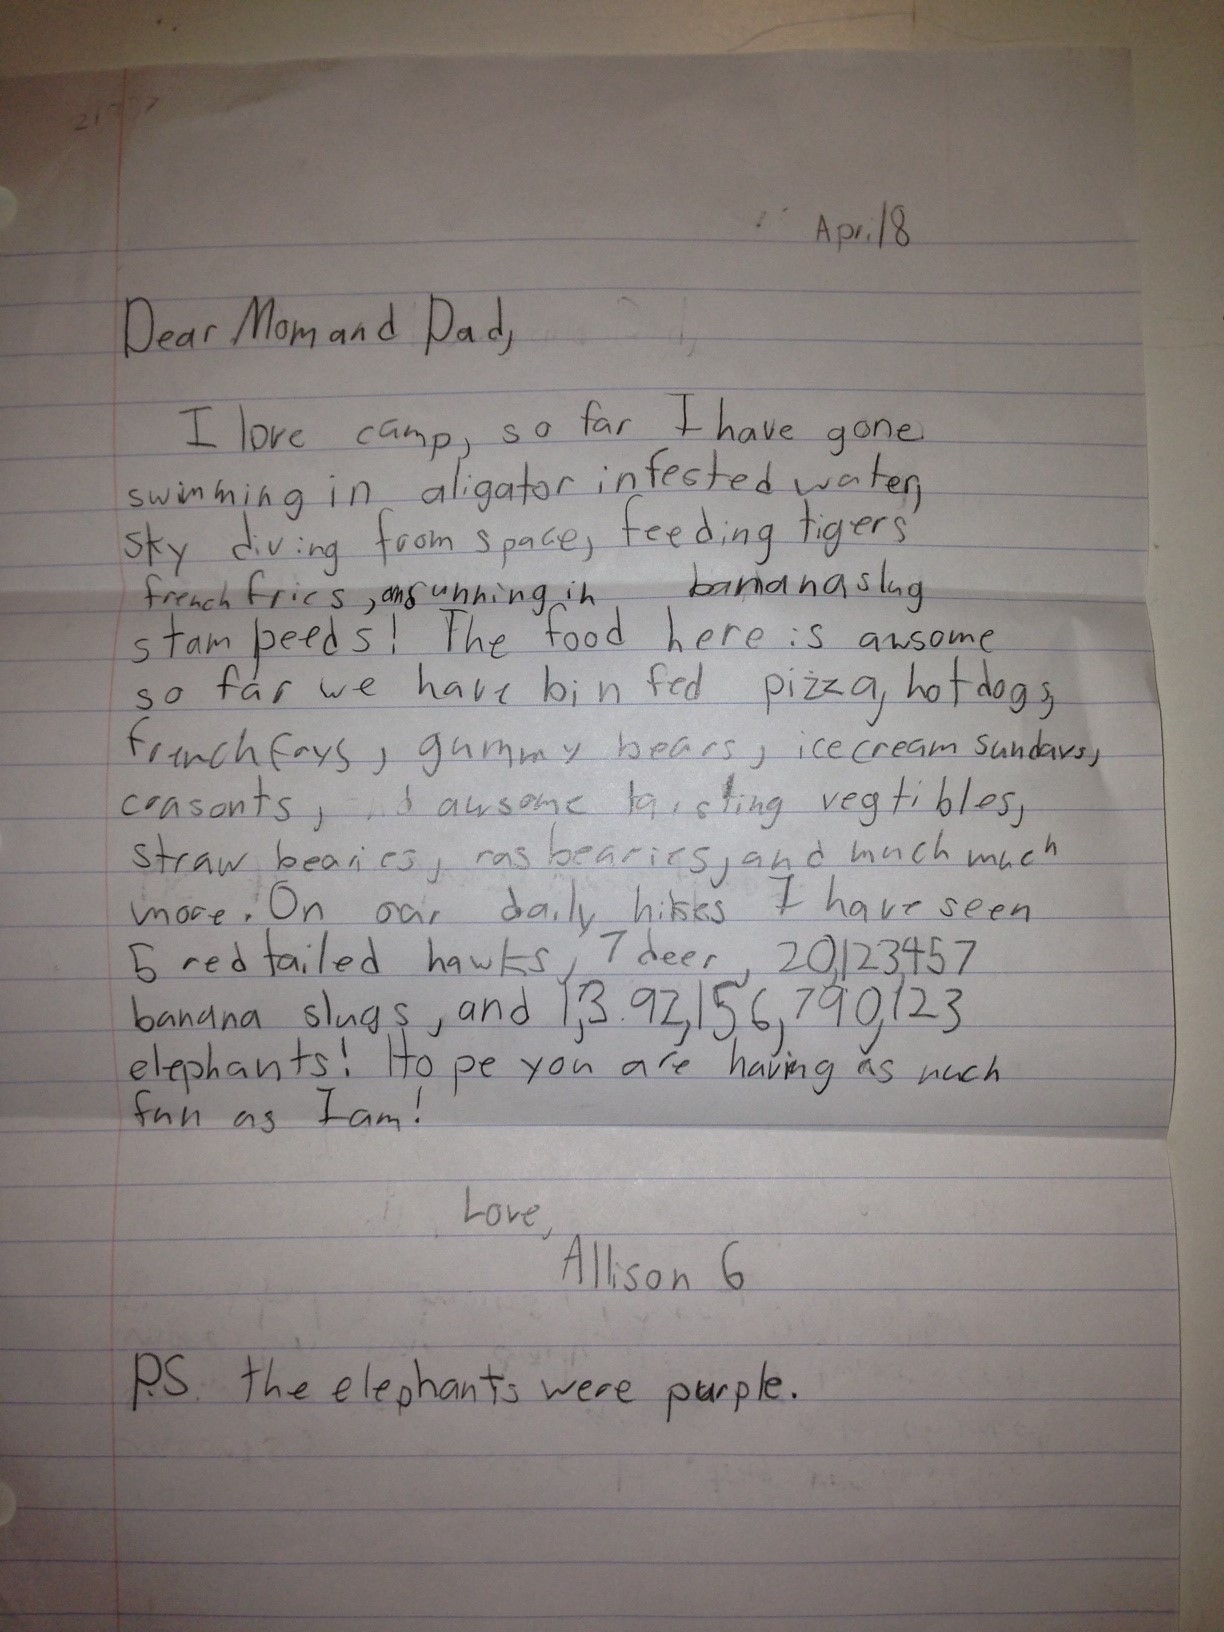 April 8
Dear Mom and Dad,
I love camp, so far I have gone
swimming in aligator infested water,
sky diving from space, feeding tigers
french fries, and running in bananaslug
stampeeds! The food here is awsome
so far we have bin fed pizza, hotdogs,
frenchfrys, gummy bears, icecream sundays,
crasonts, and awsome taisting vegtibles,
straw bearies, rasbearies, and much much
more. On our daily hikes I have seen
5 red tailed hawks, 7 deer, 20,123,457
banana slugs, and 1,3.92,156,790,123
elephants! Hope you are having as much
fun as I am!
Love,
Allison G
P.S. the elephants were purple.